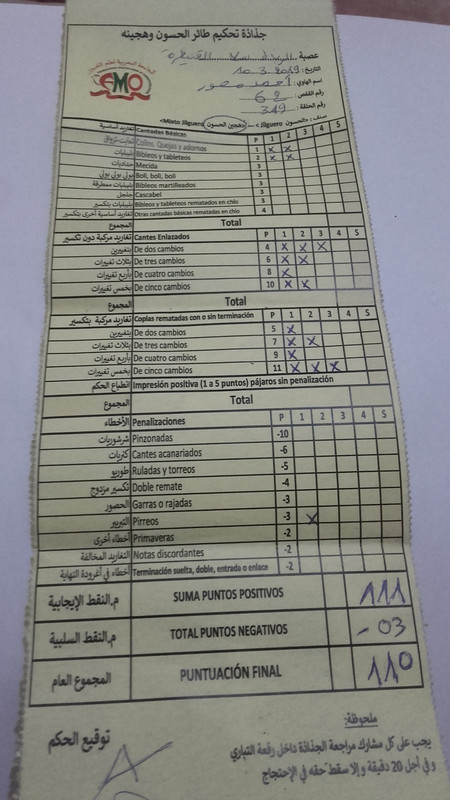 جذاذة تحكيم طائر الحسون وهجينه
عصبة
التاريخ: 10.3.2019
اسم الهاوي: أحمد منصور
رقم القفص: 62
رقم الحلقة: 319
EMO
صنف: <الحسون Jilguero> – <هجين الحسون Mixto Jilguero>
تغاريد أساسية Cantadas Básicas P 1 2 3 4 5
Collos, Quejas y adornos 1 x x
Bibleos y tableteos 2 x x
Mecida 3
بولي بولي بولي Boli, boli, boli 3
Bibleos martilleados 3
جلجل Cascabel 3
Bibleos y tableteos rematados en chio 3
تغاريد أساسية أخرى بتكسير Otras cantadas básicas rematadas en chio 4
المجموع Total
تغاريد مركبة دون تكسير Cantes Enlazados P 1 2 3 4 5
بتغييرين De dos cambios 4 x x x
بثلاث تغييرات De tres cambios 6 x x
بأربع تغييرات De cuatro cambios 8 x
بخمس تغييرات De cinco cambios 10 x x
المجموع Total
تغاريد مركبة بتكسير Coplas rematadas con o sin terminación P 1 2 3 4 5
بتغييرين De dos cambios 5 x
بثلاث تغييرات De tres cambios 7 x x
بأربع تغييرات De cuatro cambios 9 x
بخمس تغييرات De cinco cambios 11 x x x
انطباع الحكم Impresión positiva (1 a 5 puntos) pájaros sin penalización
المجموع Total
الأخطاء Penalizaciones P 1 2 3 4 5
شرشوريات Pinzonadas -10
كناريات Cantes acanariados -6
طوريو Ruladas y torreos -5
تكسير مزدوج Doble remate -4
الحصور Garras o rajadas -3
التبيرير Pirreos -3 x
أخطاء أخرى Primaveras -2
التغاريد المخالفة Notas discordantes -2
أخطاء في أغرودة النهاية Terminación suelta, doble, entrada o enlace -2
م.النقط الإيجابية SUMA PUNTOS POSITIVOS 111
م.النقط السلبية TOTAL PUNTOS NEGATIVOS - 03
المجموع العام PUNTUACIÓN FINAL 110
توقيع الحكم
ملحوظة:
يجب على كل مشارك مراجعة الجذاذة داخل رقعة التباري
و في أجل 20 دقيقة و إلا سقط حقه في الإحتجاج